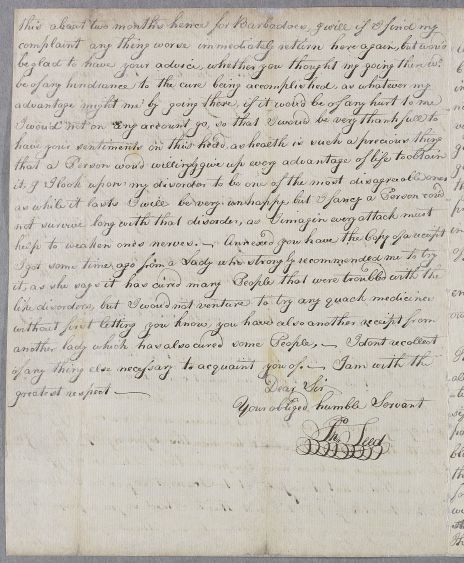 this about two months hence for Barbadoes, I will if I find my
complaint any thing worse immediately return here again, but wou'd
be glad to have your advice, whether you thought my going there wd.
be of any hindrance to the cure being accomplished, as whatever my
advantage might me by going there, if it would be of any hurt to me
I would not on any account, go, so that I would be very thankfull to
have your sentiments on this head, as health is such a precious thing
that a Person would willingly give up every advantage of life to obtain
it, I look upon my disorder to be one of the most disagreeable ones
as while it lasts I will be very unhappy but I fancy a Person coud
not survive long with that disorder, as I imagin every attack must
help to weaken ones nerves. — Annexed you have the Copy of a receipt
I got some time ago from a Lady who strongly recommended me to try
it, as she says it has cured many People that were troubled with the
like disorders, but I would not venture to try any quack medicines
without first letting you know, you have also another receipt from
another lady which has also cured some People, — I dont recollect
if any thing else necessary to acquaint you of. — I am with the
greatest respect —
Dear Sir
Your obliged humble Servant
Tho Leed